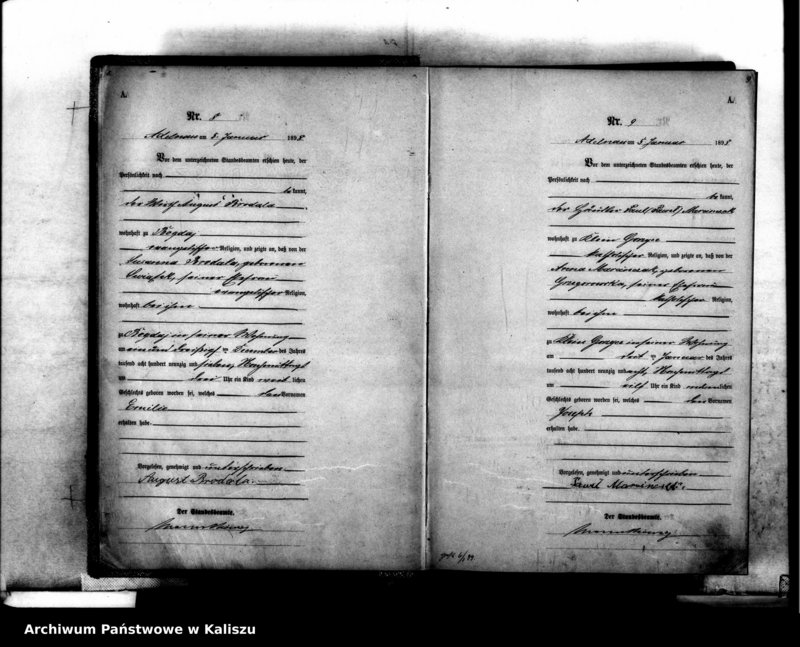 A.
Nr. 8
Adelnau am 5. Januar 1898
Vor dem unterzeichneten Standesbeamten erschien heute, der
Persönlichkeit nach
bekannt,
der Wirth August Brodala
wohnhaft zu Bogdaj
evangelischer Religion, und zeigte an, daß von der
Susanna Brodala, geborenen
seiner Ehefrau
evangelischer Religion,
wohnhaft bei ihm
zu Bogdaj in seiner Wohnung
am ein und dreißigsten Dezember des Jahres
tausend acht hundert neunzig und sieben Nachmittags
um drei Uhr ein Kind weiblichen
Geschlechts geboren worden sei, welches den Vornamen
Emilie
erhalten habe.
Vorgelesen, genehmigt und unterschrieben
August Brodala.
Der Standesbeamte.
A.
Nr. 9
Adelnau am 5. Januar 1898
Vor dem unterzeichneten Standesbeamten erschien heute, der
Persönlichkeit nach
bekannt,
der Häusler Paul (Pawel)
wohnhaft zu Klein Gorzyce
katholischer Religion, und zeigte an, daß von der
geborenen
seiner Ehefrau
katholischer Religion,
wohnhaft bei ihm
zu Klein Gorzyce in seiner Wohnung
am Januar des Jahres
tausend acht hundert neunzig und acht
um elf Uhr ein Kind männlichen
Geschlechts geboren worden sei, welches den Vornamen
Joseph
erhalten habe.
Vorgelesen, genehmigt und unterschrieben
Der Standesbeamte.
Archiwum Państwowe w Kaliszu